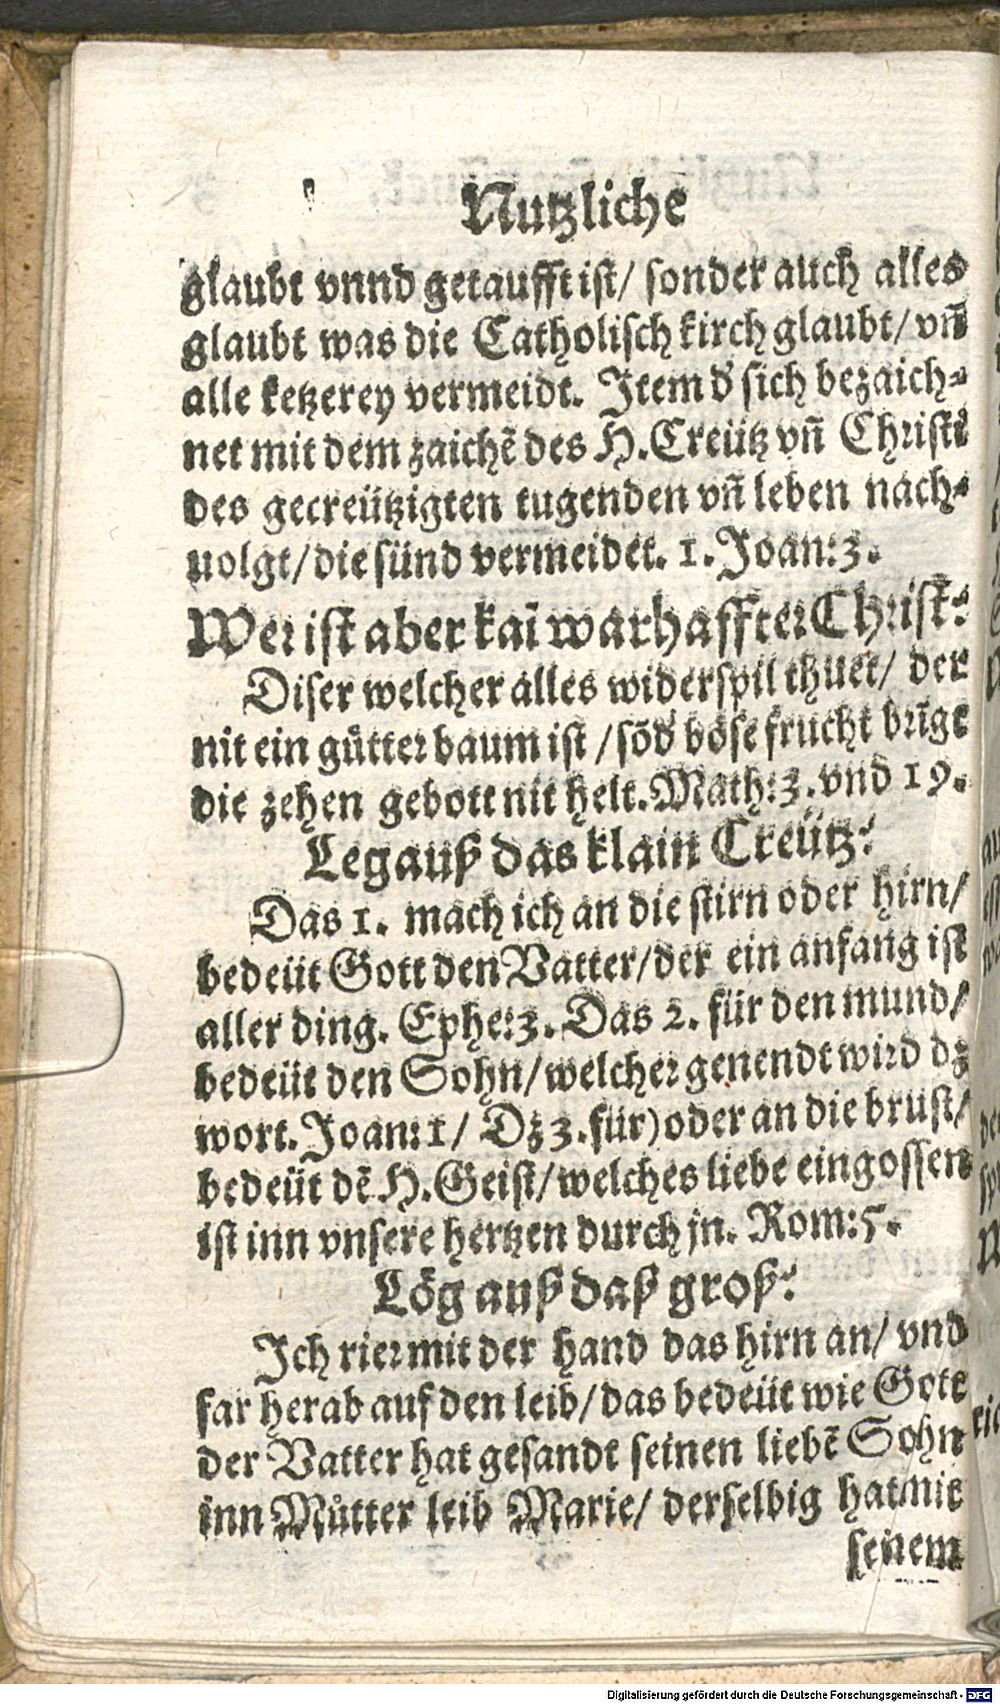 Nutzliche
glaubt vnnd getaufft ist/ sonder auch alles
glaubt was die Catholisch kirch glaubt/ vñ
alle ketzerey vermeidt. Item d' sich bezaich-
net mit dem zaichẽ des H. Creütz vñ Christi
des gecreützigten tugenden vñ leben nach-
uolgt/ die sünd vermeidet. 1. Joan: 3.
Wer ist aber kaĩ warhaffter Christ?
Diser welcher alles widerspil thuet/ der
nit ein gůtter baum ist / sõd' böse frucht brĩgt
die zehen gebott nit helt. Math: 3. vnd 19.
Leg auß das klain Creütz?
Das 1. mach ich an die stirn oder hirn/
bedeüt Gott den Vatter/ der ein anfang ist
aller ding. Ephe: 3. Das 2. für den mund/
bedeüt den Sohn/ welcher genendt wird dz
wort. Joan: 1/ Dz 3. für) oder an die brust/
bedeüt dẽ H. Geist/ welches liebe eingossen
ist inn vnsere hertzen durch jn. Rom: 5.
Lög auß daß groß?
Ich rier mit der hand das hirn an/ vnd
far herab auf den leib/ das bedeüt wie Gott
der Vatter hat gesandt seinen liebẽ Sohn
inn Můtter leib Marie/ derselbig hat mit
seinem
Digitalisierung gefördert durch die Deutsche Forschungsgemeinschaft - DFG